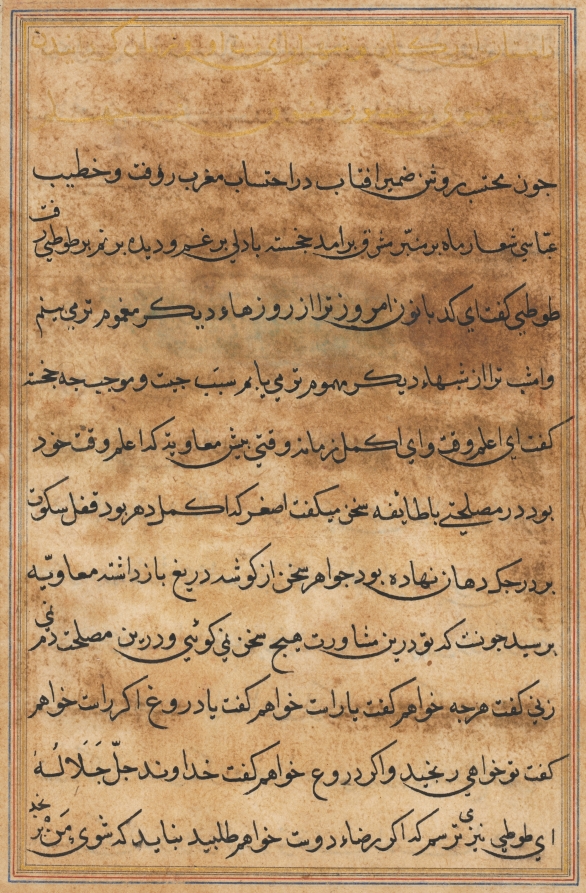 جون محتسب روشن ضمیر افتاب در احتساب مغرب رفت و خطیب
عبّاسي شعار ماه بر منبّر مشرق برامد خجسته با دلي بر غم و دیده بر نم بر طوطي رفت
طوطي کفت ای کدبانو من امروز ترا از روزهاء دیکر مغموم تر می بینم
و امشب ترا از شبهاء دیکر مهموم تر می یابم سبَب جیت و موجب جه خجسته
کفت ای اعلم وقت و ای اکمل زمانه وقتي بیش معاویّه که اعلم وقت خود
بود در مصلحتي با طایٔفه سخن میکفت اصغر که اکمل دهر بود قفل سکوت
بر درجک دهان نهاده بود جواهر سخن از کوشه دریغ بازداشته معاویّه
برسید جونست که تو درین مشاورت هیج سخن نمی کوئي و درین مصلحت دم نمی
زنی کفت هرجه خواهم کفت یا راست خواهم کفت یا دروغ اکر راست خواهم
کفت تو خواهي رنجید و اکر دروع خواهم کفت خداوند جلّ جَلَالُهُ
ای طوطي نیز می ترسم که اکر رضاء دوست خواهم طلبید نباید که شوی مَن برنجد